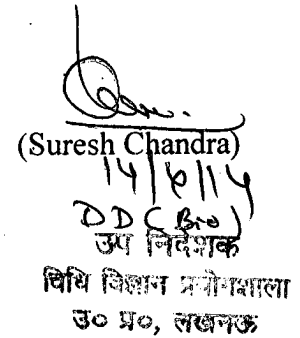 (Suresh Chandra)
14/6/14
DD (Bio)
उप निदेशक
विधि विज्ञान प्रयोगशाला
उ० प्र०, लखनऊ